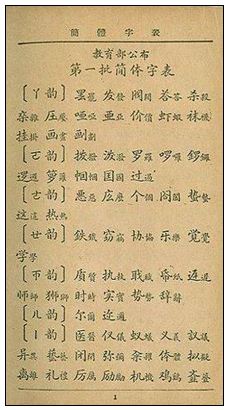 簡體字表
教育部公布
第一批简体字表
〔ㄚ韵〕罢罷 发發 阀閥 荅答 杀殺
杂雜 压壓 哑啞 亚亞 价價 虾蝦 袜襪
挂掛 画畫 划劃
〔ㄛ韵〕拨撥 泼潑 罗羅 啰囉 锣鑼
逻邏 箩籮 国國 过過
〔ㄜ韵〕恶惡 庅麼 个個 阁閣 蛰蟄
这這 热熱
〔ㄝ韵〕鉄鐵 窃竊 协協 乐樂 觉覺
学學
〔ㄭ韵〕质質 执執 职職 帋紙 迟遲
师師 狮獅 时時 实實 势勢 辞辭
〔ㄦ韵〕尔爾 迩邇
〔ㄧ韵〕医醫 仪儀 蚁蟻 义義 议議
异異 艺藝 闭閉 弥彌 籴糴 体體 拟擬
离離 礼禮 厉厲 励勵 机機 鸡鷄
1